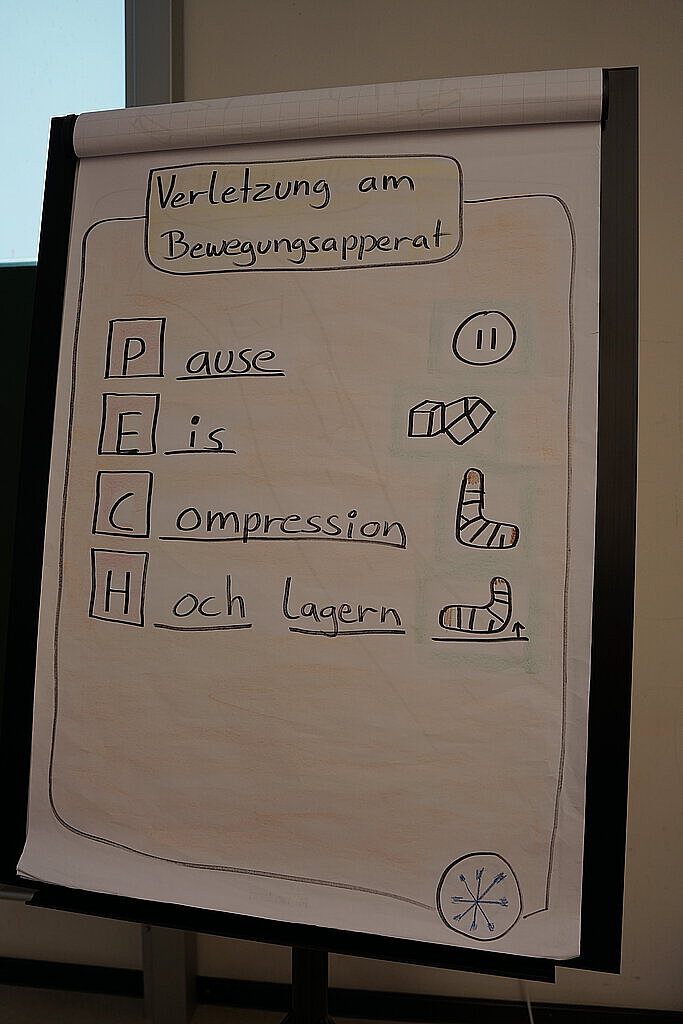 Verletzung am
Bewegungsapperat
Pause
Eis
Compression
Hoch lagern